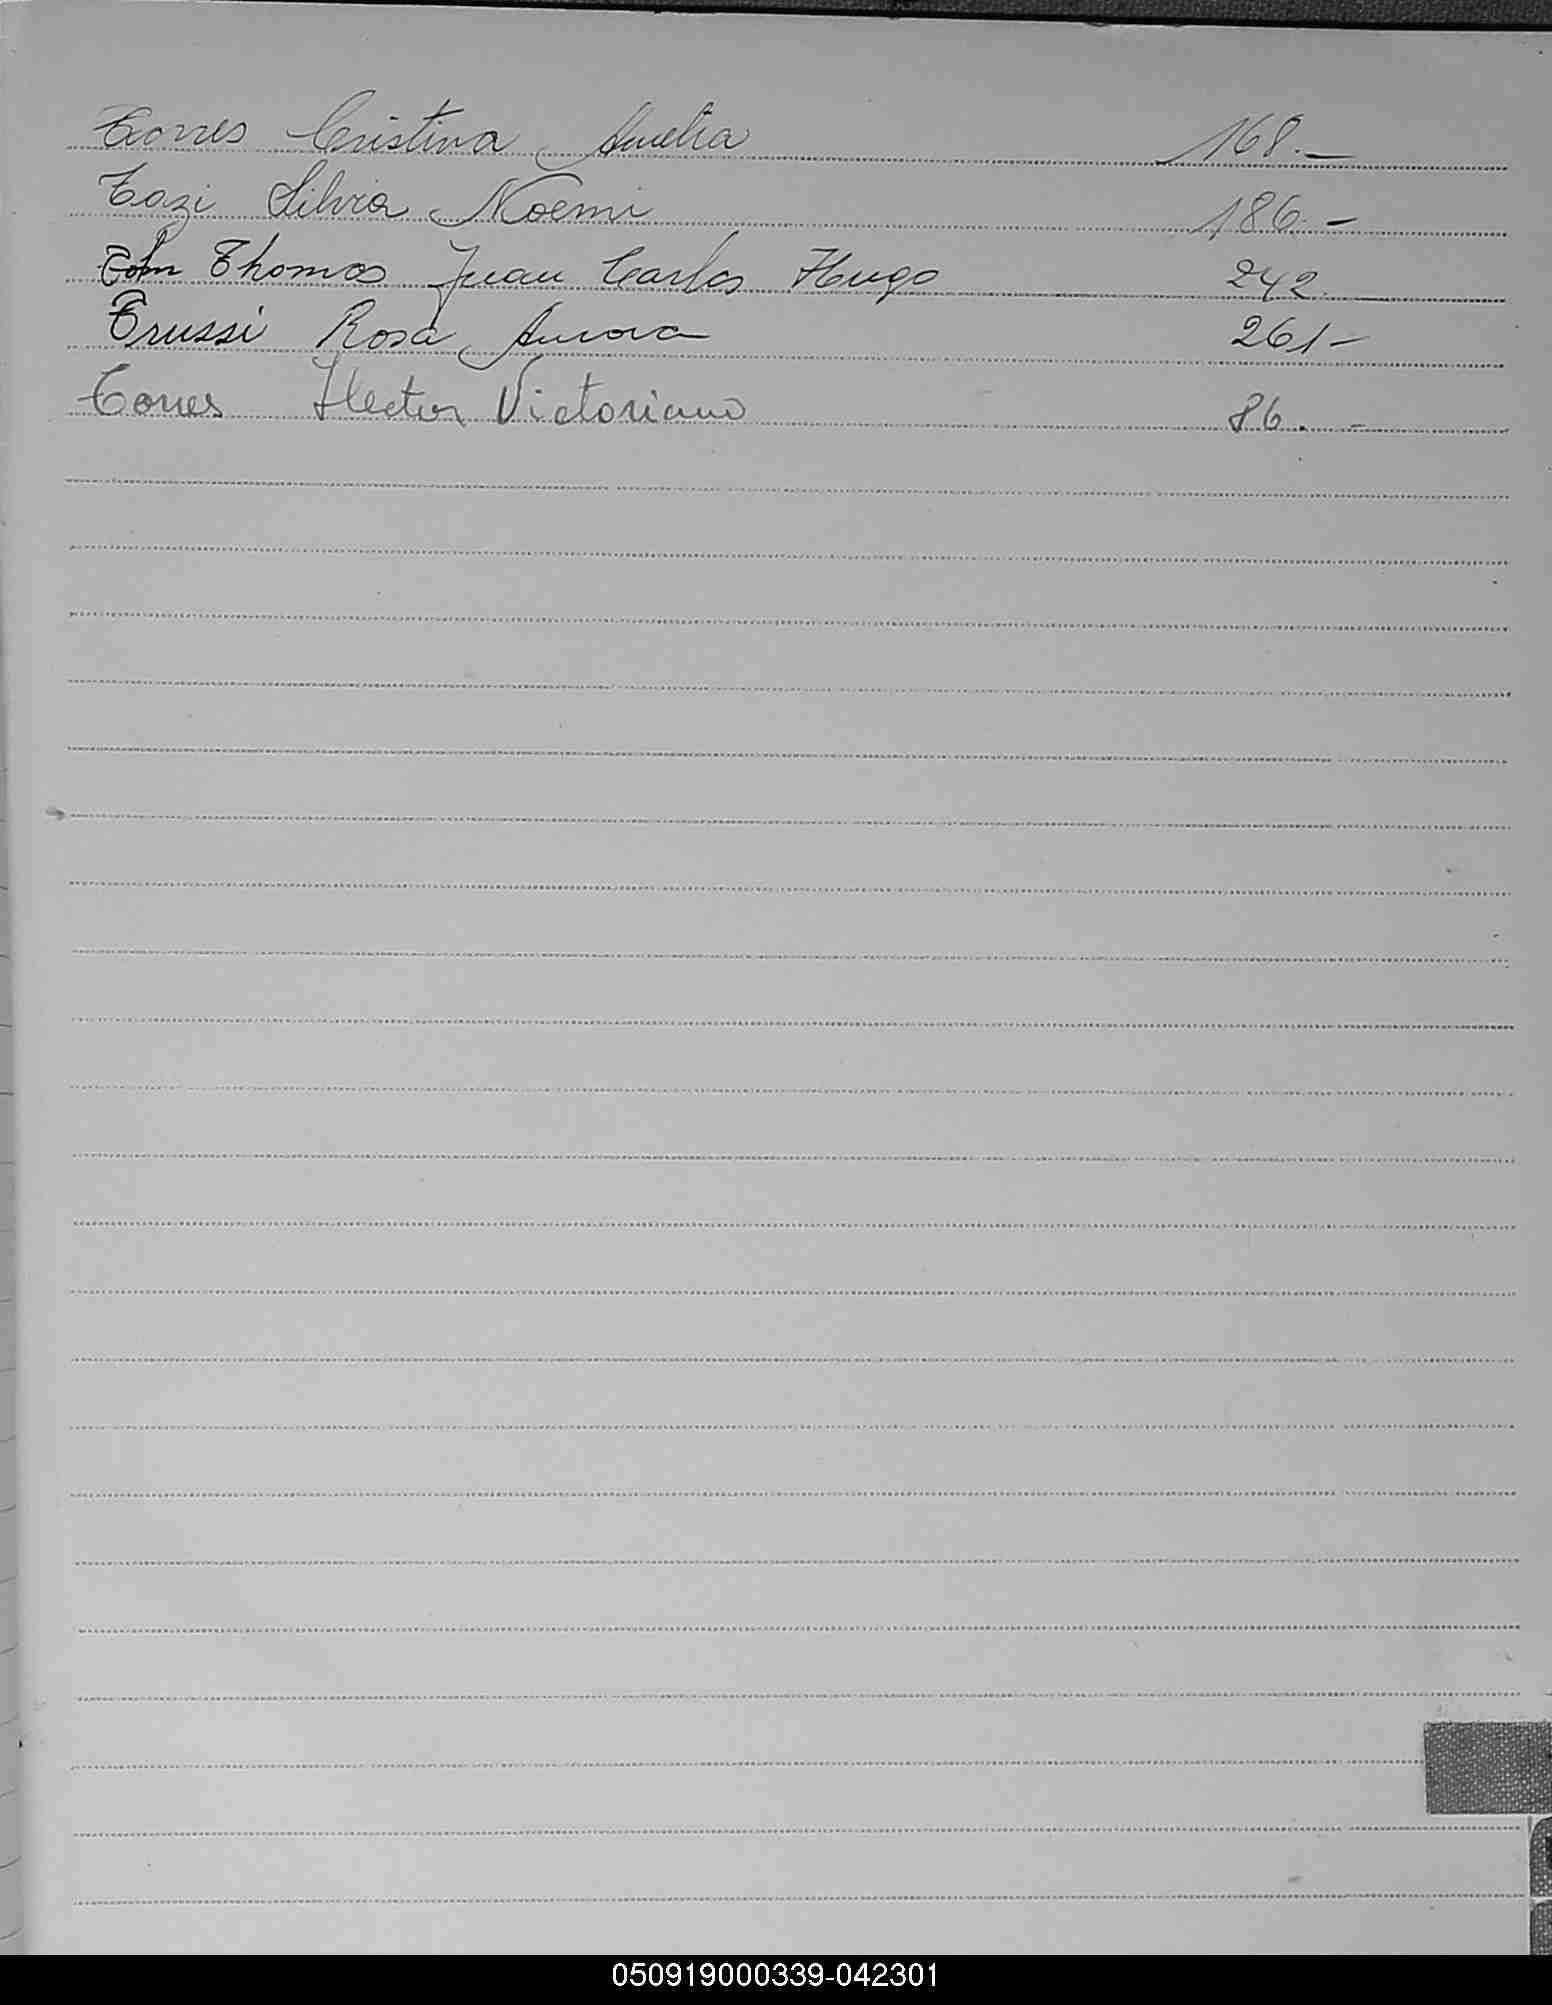 Torres Cristina Amelia 168.—
Tazi Silvia Noemi 186.—
Thomas Juan Carlos Hugo 242.
Trussi Rosa Aurora 261—
Torres Hector Victoriano 86.-
050919000339-042301